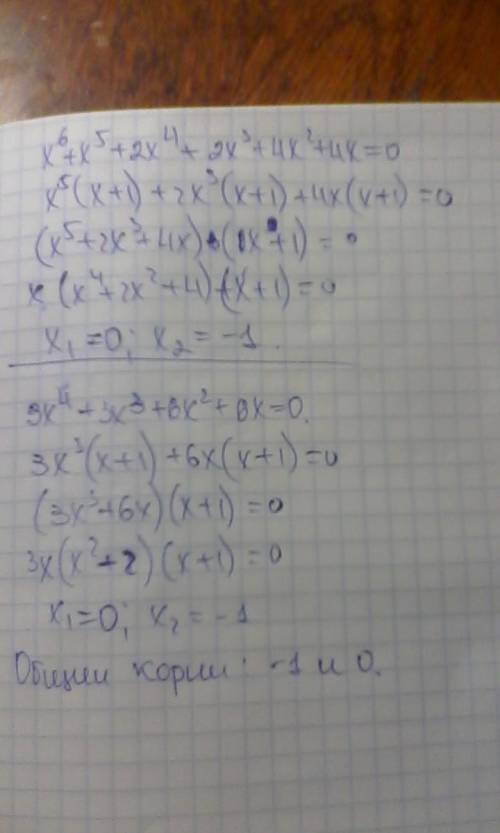 x⁶+x⁵+2x⁴+2x³+4x²+4x=0
x⁵(x+1)+2x³(x+1)+4x(x+1)=0
(x⁵+2x³+4x)·(x+1)=0
x(x⁴+2x²+4)(x+1)=0
x₁=0; x₂=-1.
3x⁴+3x³+6x²+6x=0.
3x³(x+1)+6x(x+1)=0
(3x³+6x)(x+1)=0
3x(x²+2)(x+1)=0
x₁=0; x₂=-1
Общии корни: -1 и 0.